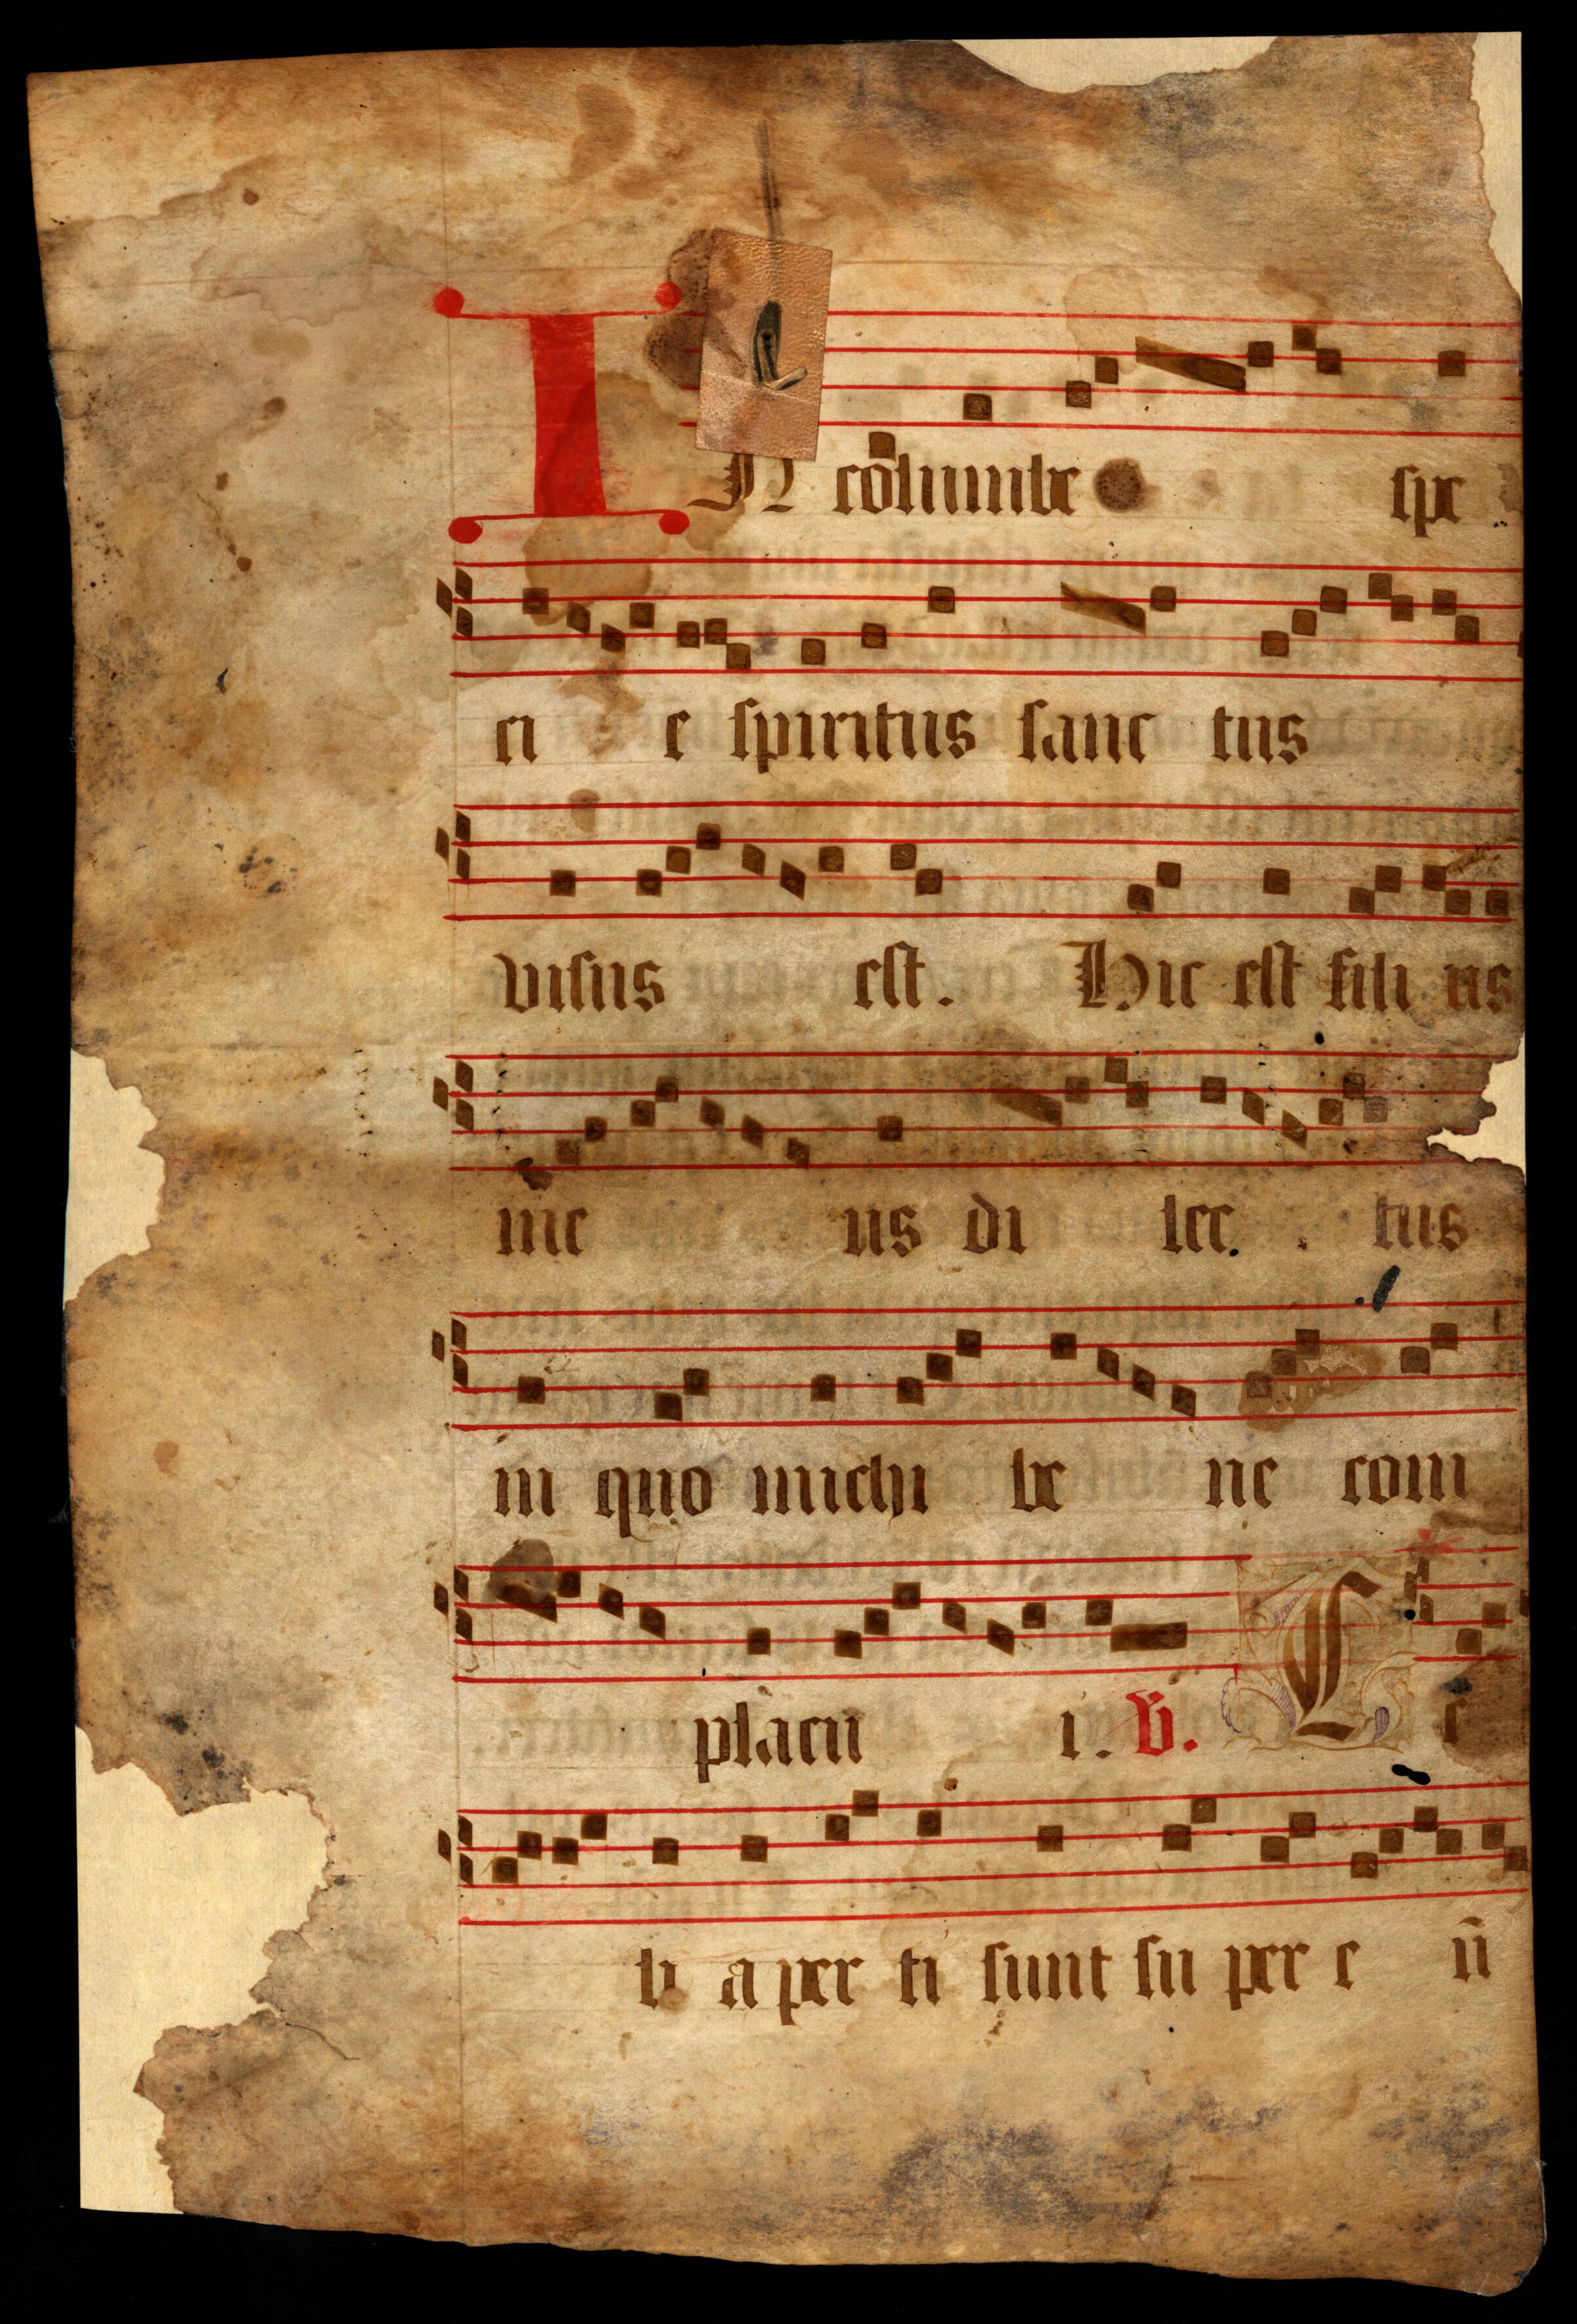 IN columbe spe
ci e spiritus sanc tus
visus est. Hic est fili us
me us di lec tus
in quo michi be ne com
placu i. V. C e
li a per ti sunt su per e ū